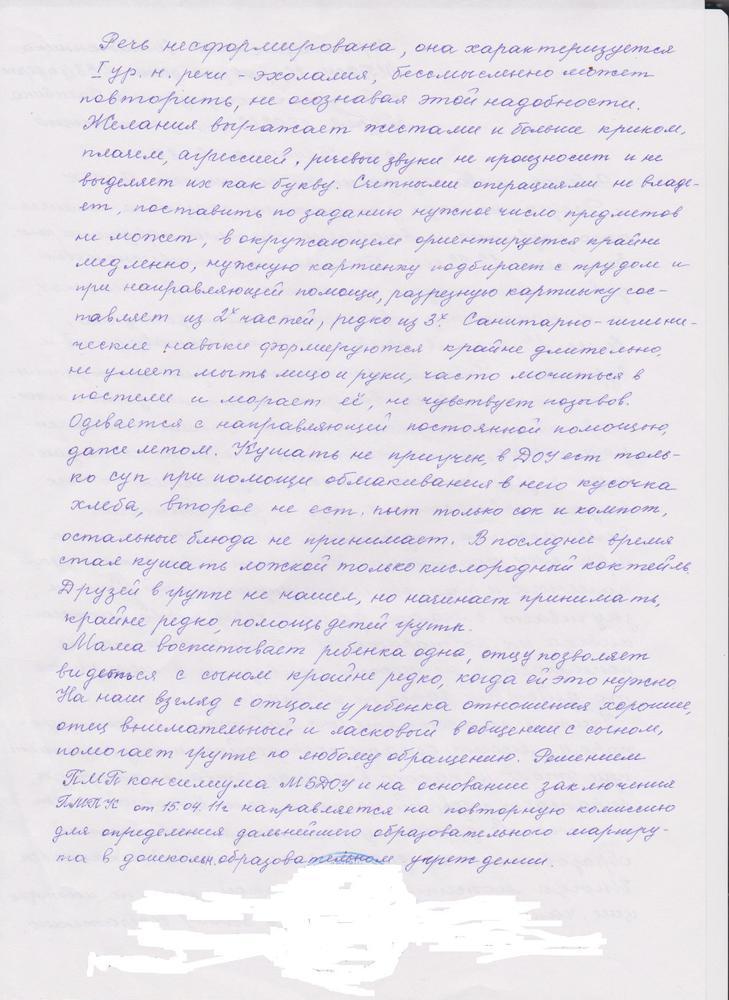 Речь несформирована, она характеризуется
I ур. н. речи - эхолалия, бессмысленно может
повторить, не осознавая этой надобности.
Желания выражает жестами и больше криком,
плачем, агрессией, речевые звуки не произносит и не
выделяет их как букву. Счетными операциями не владе-
ет, поставить по заданию нужное число предметов
не может, в окружающем ориентируется крайне
медленно, нужную картинку подбирает с трудом и
при направляющей помощи, разрезную картинку сос-
тавляет из 2х частей, редко из 3х. Санитарно-гигиени-
ческие навыки формируются крайне длительно,
не умеет мыть лицо и руки, часто мочиться в
постели и морает её, не чувствует позывов.
Одевается с направляющей постоянной помощью,
даже летом. Кушать не приучен, в ДОУ ест толь-
ко суп при помощи обмакивания в него кусочка
хлеба, второе не ест. пьет только сок и компот,
остальные блюда не принимает. В последнее время
стал кушать ложкой только кислородный коктейль.
Друзей в группе не нашел, но начинает принимать,
крайне редко, помощь детей группы.
Мама воспитывает ребенка одна, отцу позволяет
видеться с сыном крайне редко, когда ей это нужно
На наш взгляд с отцом у ребенка отношения хорошие,
отец внимательный и ласковый в общении с сыном,
помогает группе по любому обращению. Решением
ПМП консилиума МБДОУ и на основании заключения
ПМПК от 15.04.11г направляется на повторную комиссию
для определения дальнейшего образовательного маршру-
та в дошкольн. образовательном учреждении.